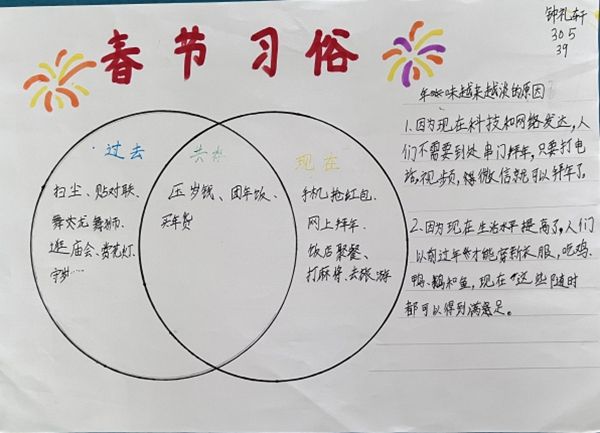 春节习俗
钟礼轩
305
39
过去
扫尘、贴对联、
舞龙 舞狮、
逛庙会、赏花灯、
守岁……
共有
压岁钱、团年饭、
买年货
现在
手机抢红包、
网上拜年、
饭店聚餐、
打麻将、去旅游
年味越来越淡的原因
1、因为现在科技和网络发达,人
们不需要到处串门拜年,只要打电
话,视频,微信就可以拜年了。
2、因为现在生活水平提高了,人们
以前过年才能穿新衣服,吃鸡、
鸭、鹅和鱼,现在这些随时
都可以得到满足。